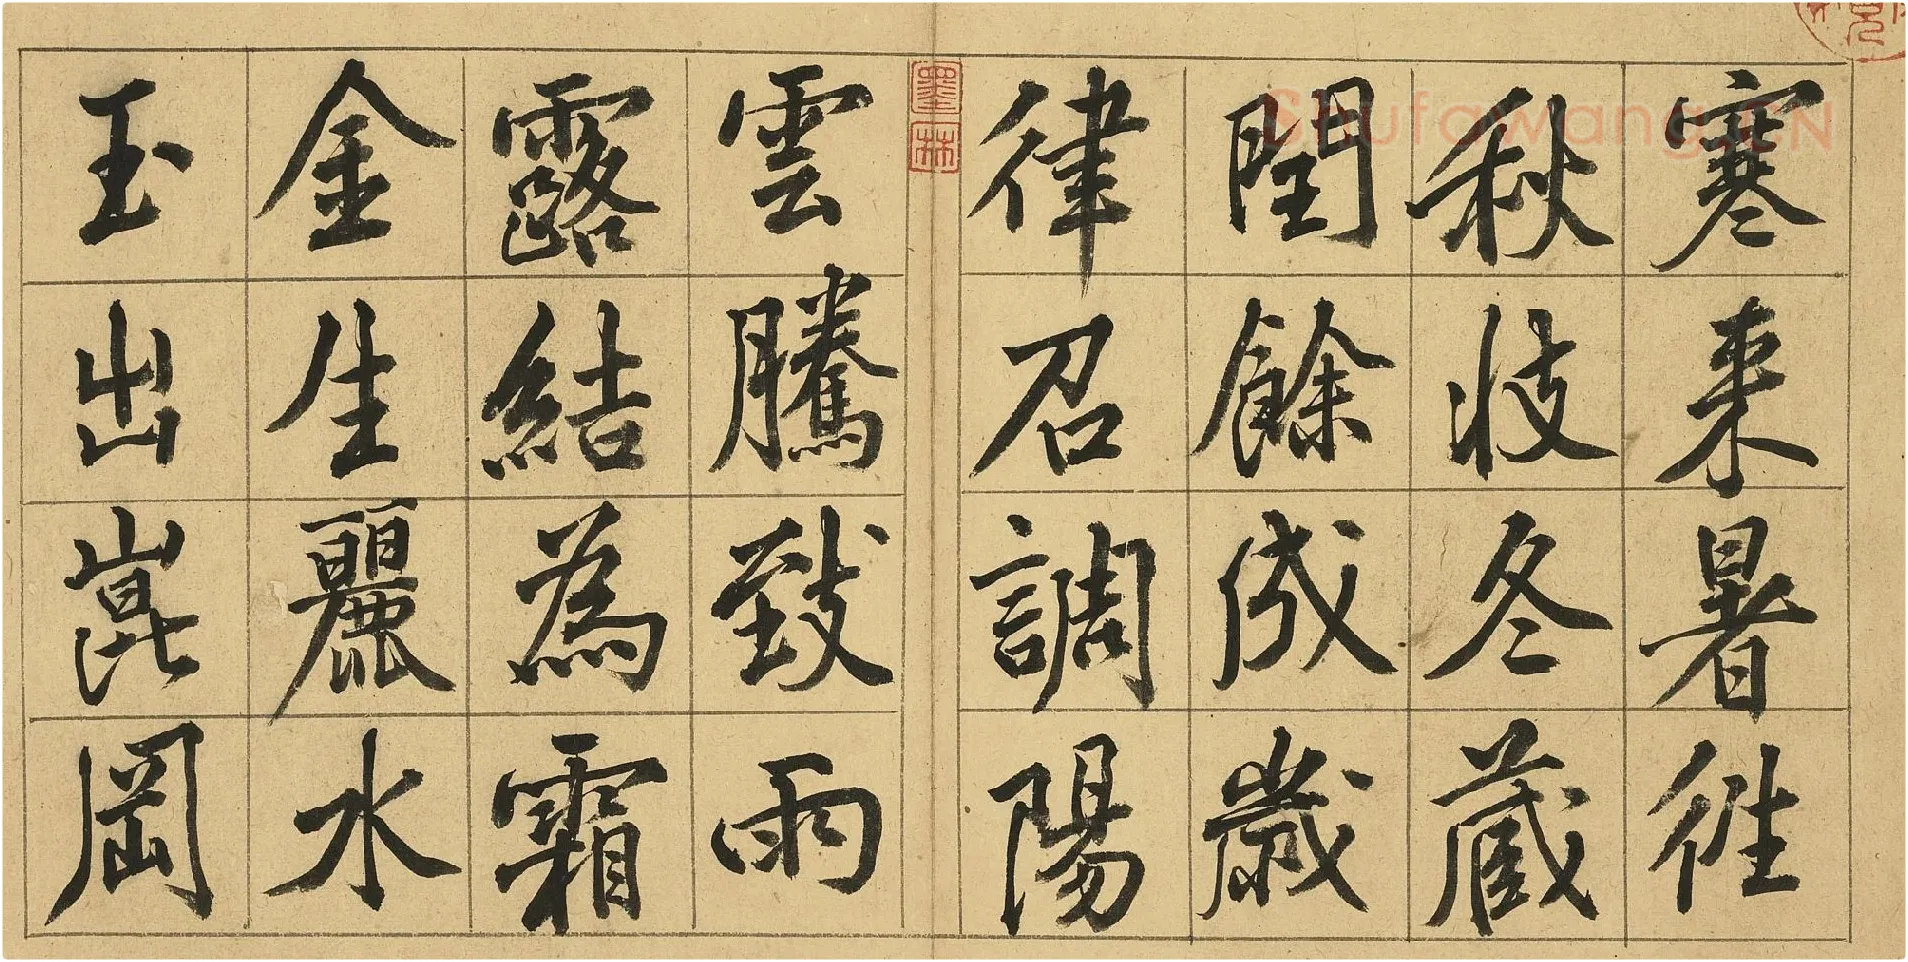 寒来暑往
秋收冬蔵
閏餘成歲
律召調陽
雲騰致雨
露結為霜
金生麗水
玉出崑岡
墨林
Shufawang.CN